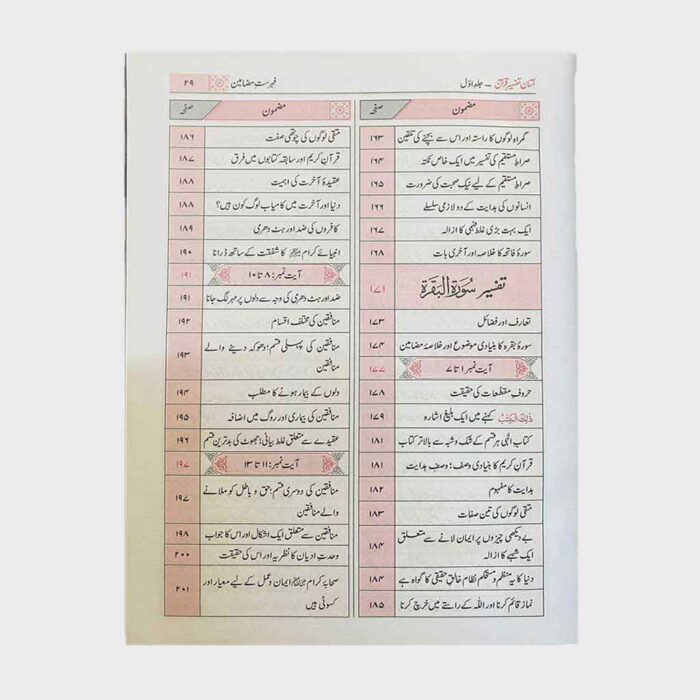 آسان تفسیر قرآن - جلد اوّل
فہرستِ مضامین
۲۹
مضمون
صفحہ
گمراہ لوگوں کا راستہ اور اس سے بچنے کی تلقین
۱۶۳
صراطِ مستقیم کی تفسیر میں ایک خاص نکتہ
۱۶۴
صراطِ مستقیم کے لیے نیک صحبت کی ضرورت
۱۶۵
انسانوں کی ہدایت کے دو لازمی سلسلے
۱۶۶
ایک بہت بڑی غلط فہمی کا ازالہ
۱۶۷
سورۂ فاتحہ کا خلاصہ اور آخری بات
۱۶۸
تفسیر سُورَۃُ الْبَقَرَۃ
۱۷۱
تعارف اور فضائل
۱۷۳
سورۂ بقرہ کا بنیادی موضوع اور خلاصۂ مضامین
۱۷۴
آیت نمبر: ۱ تا ۷
۱۷۷
حروفِ مقطّعات کی حقیقت
۱۷۸
ذٰلِكَ الْكِتٰبُ کہنے میں ایک بلیغ اشارہ
۱۷۹
کتابِ الٰہی ہر قسم کے شک و شبہ سے بالاتر کتاب
۱۸۱
قرآنِ کریم کا بنیادی وصف؛ وصفِ ہدایت
۱۸۱
ہدایت کا مفہوم
۱۸۲
متقی لوگوں کی تین صفات
۱۸۳
بے دیکھی چیزوں پر ایمان لانے سے متعلق
ایک شبہے کا ازالہ
۱۸۴
دنیا کا یہ منظم و مستحکم نظام خالقِ حقیقی کا گواہ ہے
۱۸۴
نماز قائم کرنا اور اللہ کے راستے میں خرچ کرنا
۱۸۵
مضمون
صفحہ
متقی لوگوں کی چوتھی صفت
۱۸۶
قرآنِ کریم اور سابقہ کتابوں میں فرق
۱۸۷
عقیدۂ آخرت کی اہمیت
۱۸۸
دنیا اور آخرت میں کامیاب لوگ کون ہیں؟
۱۸۸
کافروں کی ضد اور ہٹ دھری
۱۸۹
انبیائے کرام کا شفقت کے ساتھ ڈرانا
۱۹۰
آیت نمبر: ۸ تا ۱۰
۱۹۱
ضد اور ہٹ دھری کی وجہ سے دلوں پر مہر لگ جانا
۱۹۱
منافقین کی مختلف اقسام
۱۹۲
منافقین کی پہلی قسم؛ دھوکہ دینے والے
منافقین
۱۹۳
دلوں کے بیمار ہونے کا مطلب
۱۹۴
منافقین کی بیماری اور روگ میں اضافہ
۱۹۵
عقیدے سے متعلق غلط بیانی؛ جھوٹ کی بدترین قسم
۱۹۶
آیت نمبر: ۱۱ تا ۱۳
۱۹۷
منافقین کی دوسری قسم؛ حق و باطل کو ملانے
والے منافقین
۱۹۷
منافقین سے متعلق ایک اشکال اور اس کا جواب
۱۹۸
وحدتِ ادیان کا نظریہ اور اس کی حقیقت
۲۰۰
صحابۂ کرام ایمان و عمل کے لیے معیار اور
کسوٹی ہیں
۲۰۱